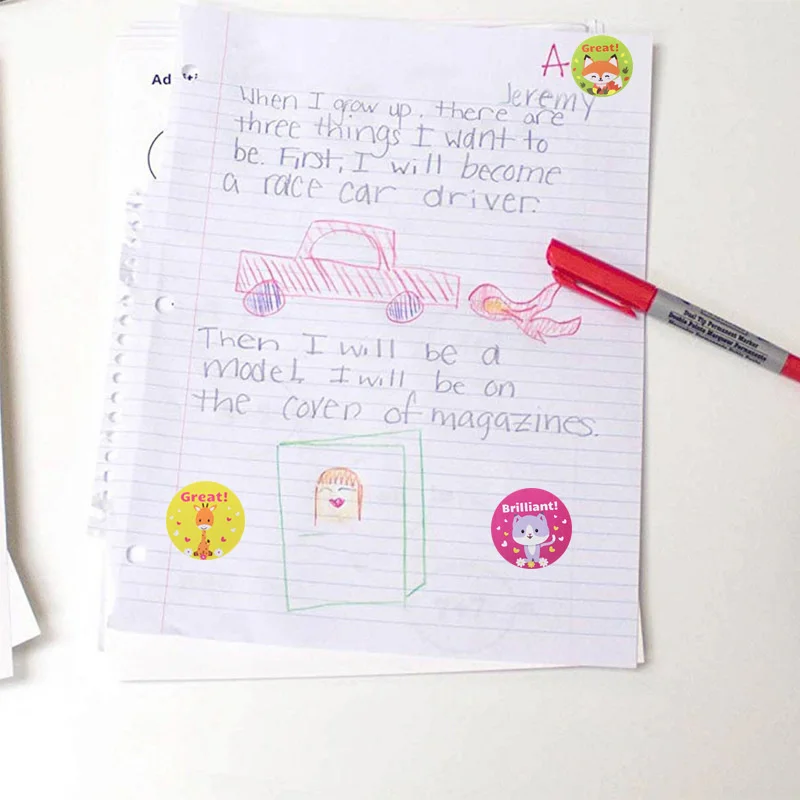 A
Great!
Jeremy
When I grow up, there are
three things I want to
be. First, I will become
a race car driver.
Dual Tip Permanent Marker
Then I will be a
model. I will be on
the cover of magazines.
Great!
Brilliant!
Ad